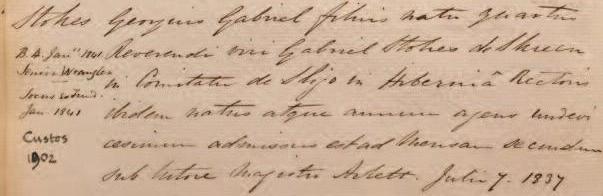 Stokes Georgius Gabriel filius natu quartus
B.A. Janʸ 1841 Reverendi viri Gabriel Stokes de Skreen
Senior Wrangler in Comitatu de Sligo in Hiberniâ Rectoris
Socius
Jan. 1841 ibidem natus atque annum agens undevi
Custos cesimum admissus est ad Mensam secundam
1902 sub tutore Magistro Arlett. Julii 7. 1837